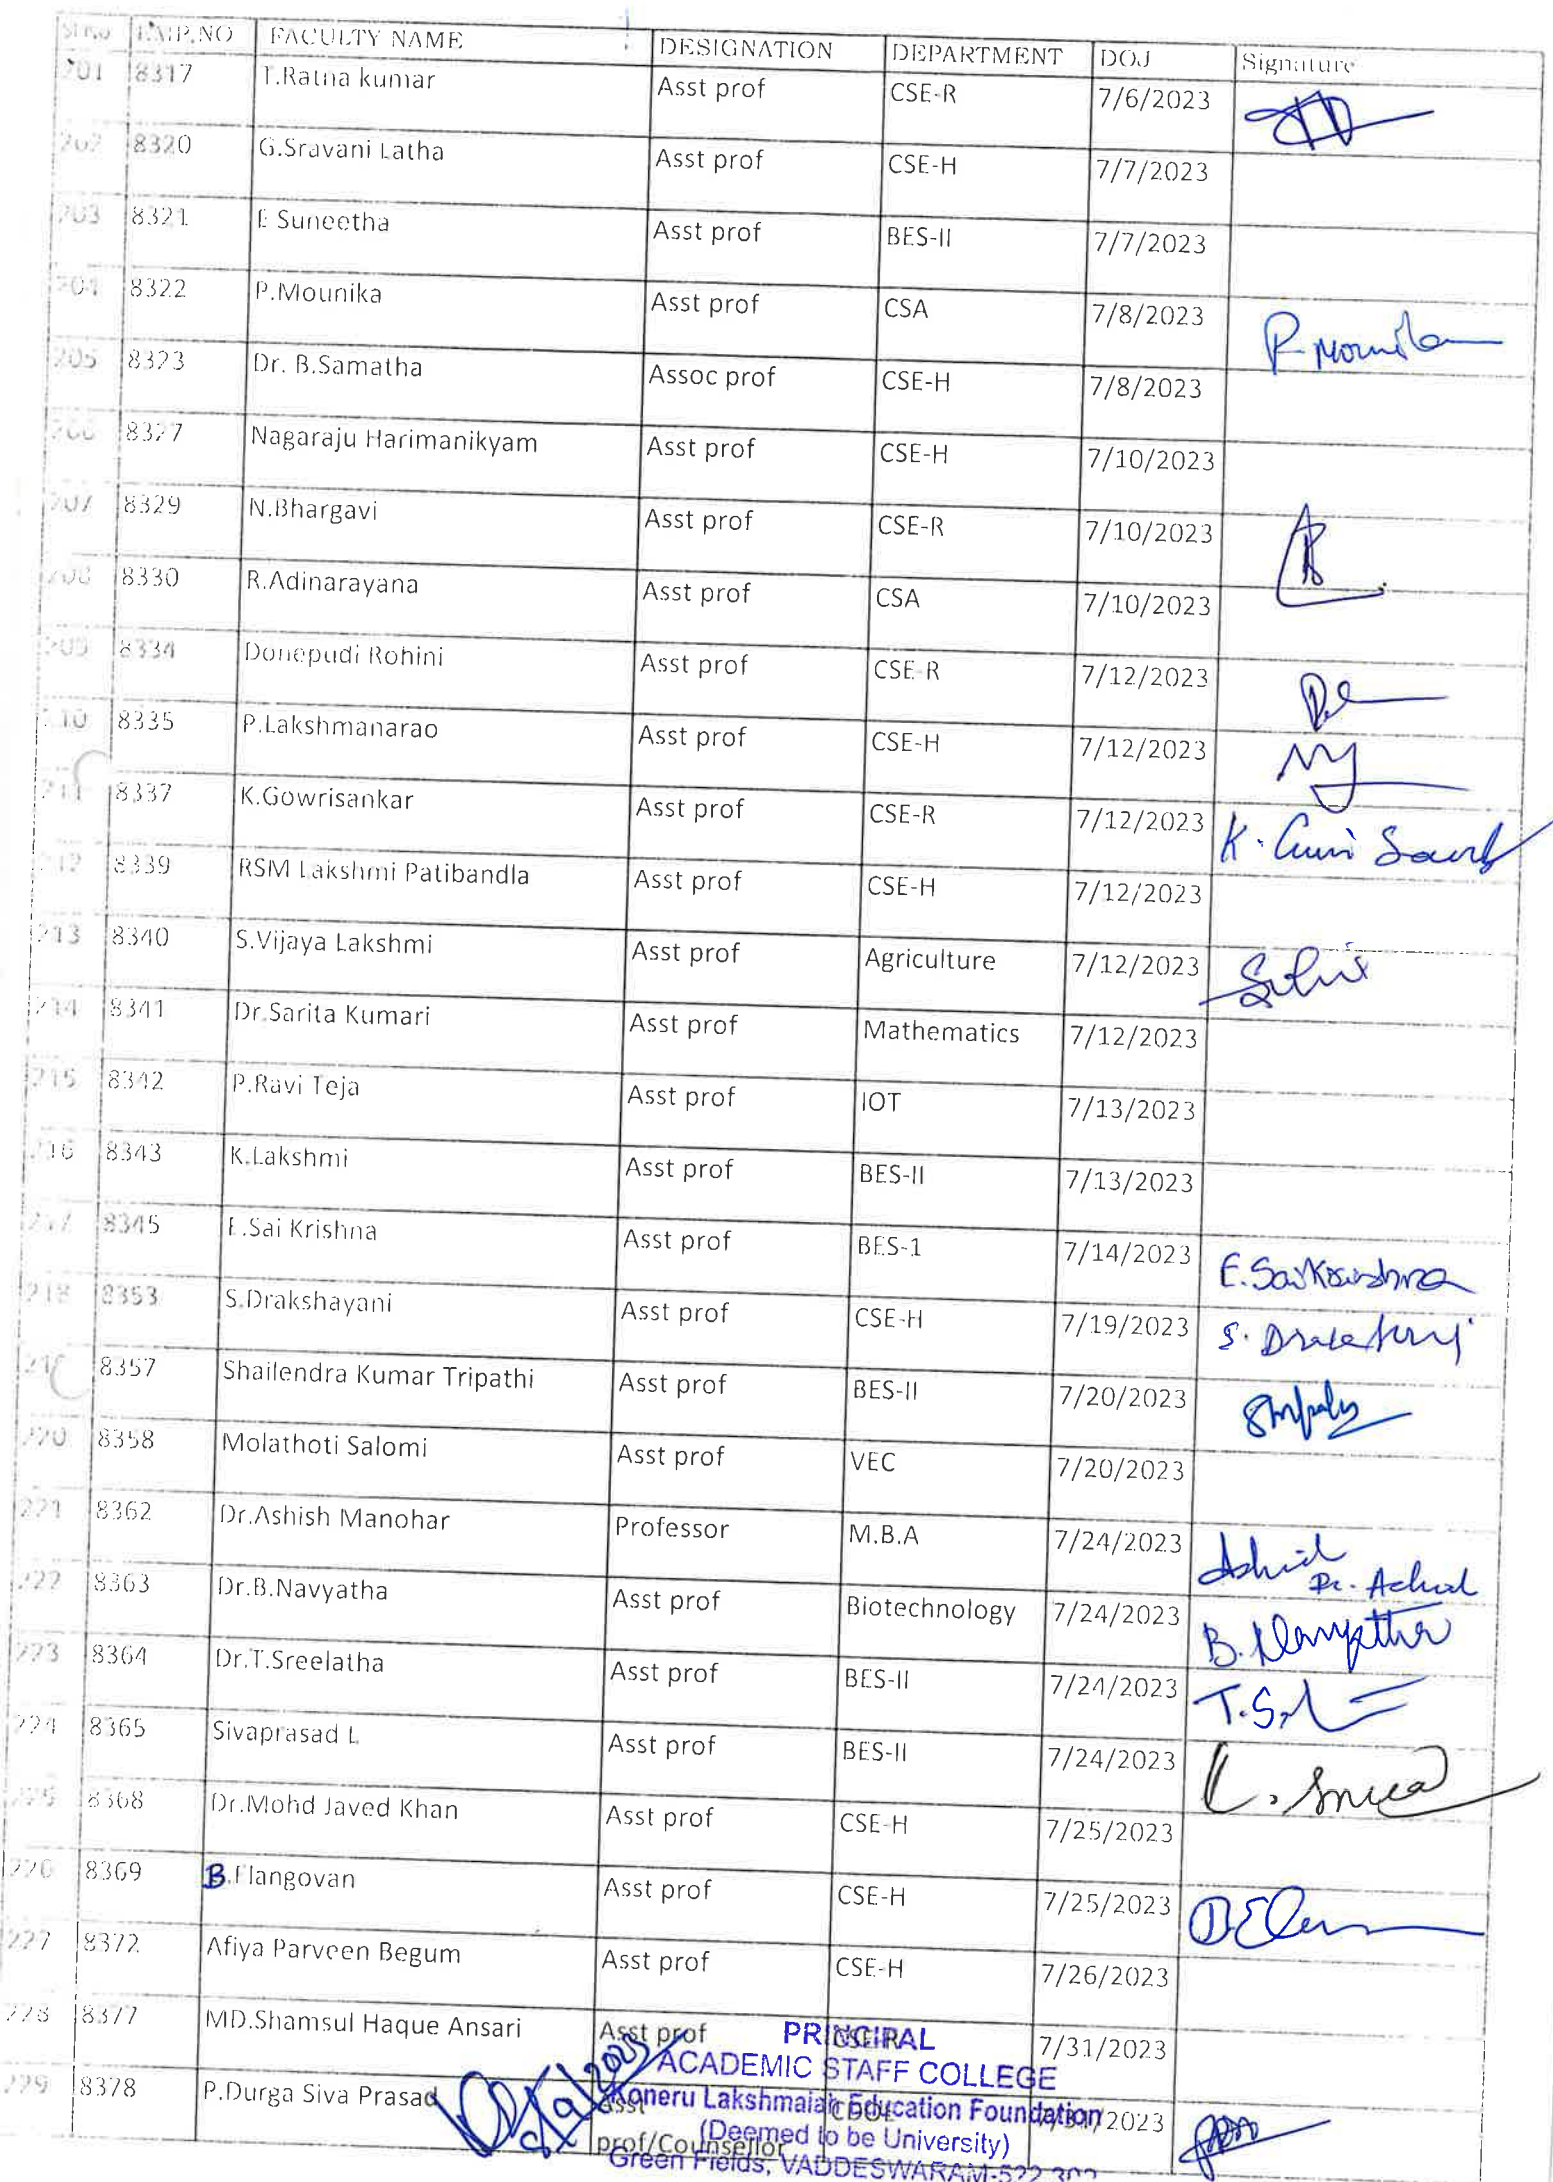 Sl No EMP.NO FACULTY NAME DESIGNATION DEPARTMENT DOJ Signature
201 8317 T.Ratna kumar Asst prof CSE-R 7/6/2023
202 8320 G.Sravani Latha Asst prof CSE-H 7/7/2023
203 8321 E Suneetha Asst prof BES-II 7/7/2023
204 8322 P.Mounika Asst prof CSA 7/8/2023 P. Mounika
205 8323 Dr. B.Samatha Assoc prof CSE-H 7/8/2023
206 8327 Nagaraju Harimanikyam Asst prof CSE-H 7/10/2023
207 8329 N.Bhargavi Asst prof CSE-R 7/10/2023
208 8330 R.Adinarayana Asst prof CSA 7/10/2023
209 8334 Donepudi Rohini Asst prof CSE-R 7/12/2023
210 8335 P.Lakshmanarao Asst prof CSE-H 7/12/2023
211 8337 K.Gowrisankar Asst prof CSE-R 7/12/2023 K.
212 8339 RSM Lakshmi Patibandla Asst prof CSE-H 7/12/2023
213 8340 S.Vijaya Lakshmi Asst prof Agriculture 7/12/2023
214 8341 Dr.Sarita Kumari Asst prof Mathematics 7/12/2023
215 8342 P.Ravi Teja Asst prof IOT 7/13/2023
216 8343 K.Lakshmi Asst prof BES-II 7/13/2023
217 8345 E.Sai Krishna Asst prof BES-1 7/14/2023 E.Saikrishna
218 8353 S.Drakshayani Asst prof CSE-H 7/19/2023 S.
219 8357 Shailendra Kumar Tripathi Asst prof BES-II 7/20/2023
220 8358 Molathoti Salomi Asst prof VEC 7/20/2023
221 8362 Dr.Ashish Manohar Professor M.B.A 7/24/2023
222 8363 Dr.B.Navyatha Asst prof Biotechnology 7/24/2023 B. Navyatha
223 8364 Dr.T.Sreelatha Asst prof BES-II 7/24/2023
224 8365 Sivaprasad L Asst prof BES-II 7/24/2023
225 8368 Dr.Mohd Javed Khan Asst prof CSE-H 7/25/2023
226 8369 B.Elangovan Asst prof CSE-H 7/25/2023
227 8372 Afiya Parveen Begum Asst prof CSE-H 7/26/2023
228 8377 MD.Shamsul Haque Ansari Asst prof 7/31/2023
229 8378 P.Durga Siva Prasad Asst prof/Counsellor CDOE 7/31/2023
PRINCIPAL
ACADEMIC STAFF COLLEGE
Koneru Lakshmaiah Education Foundation
(Deemed to be University)
Green Fields, VADDESWARAM-522 302